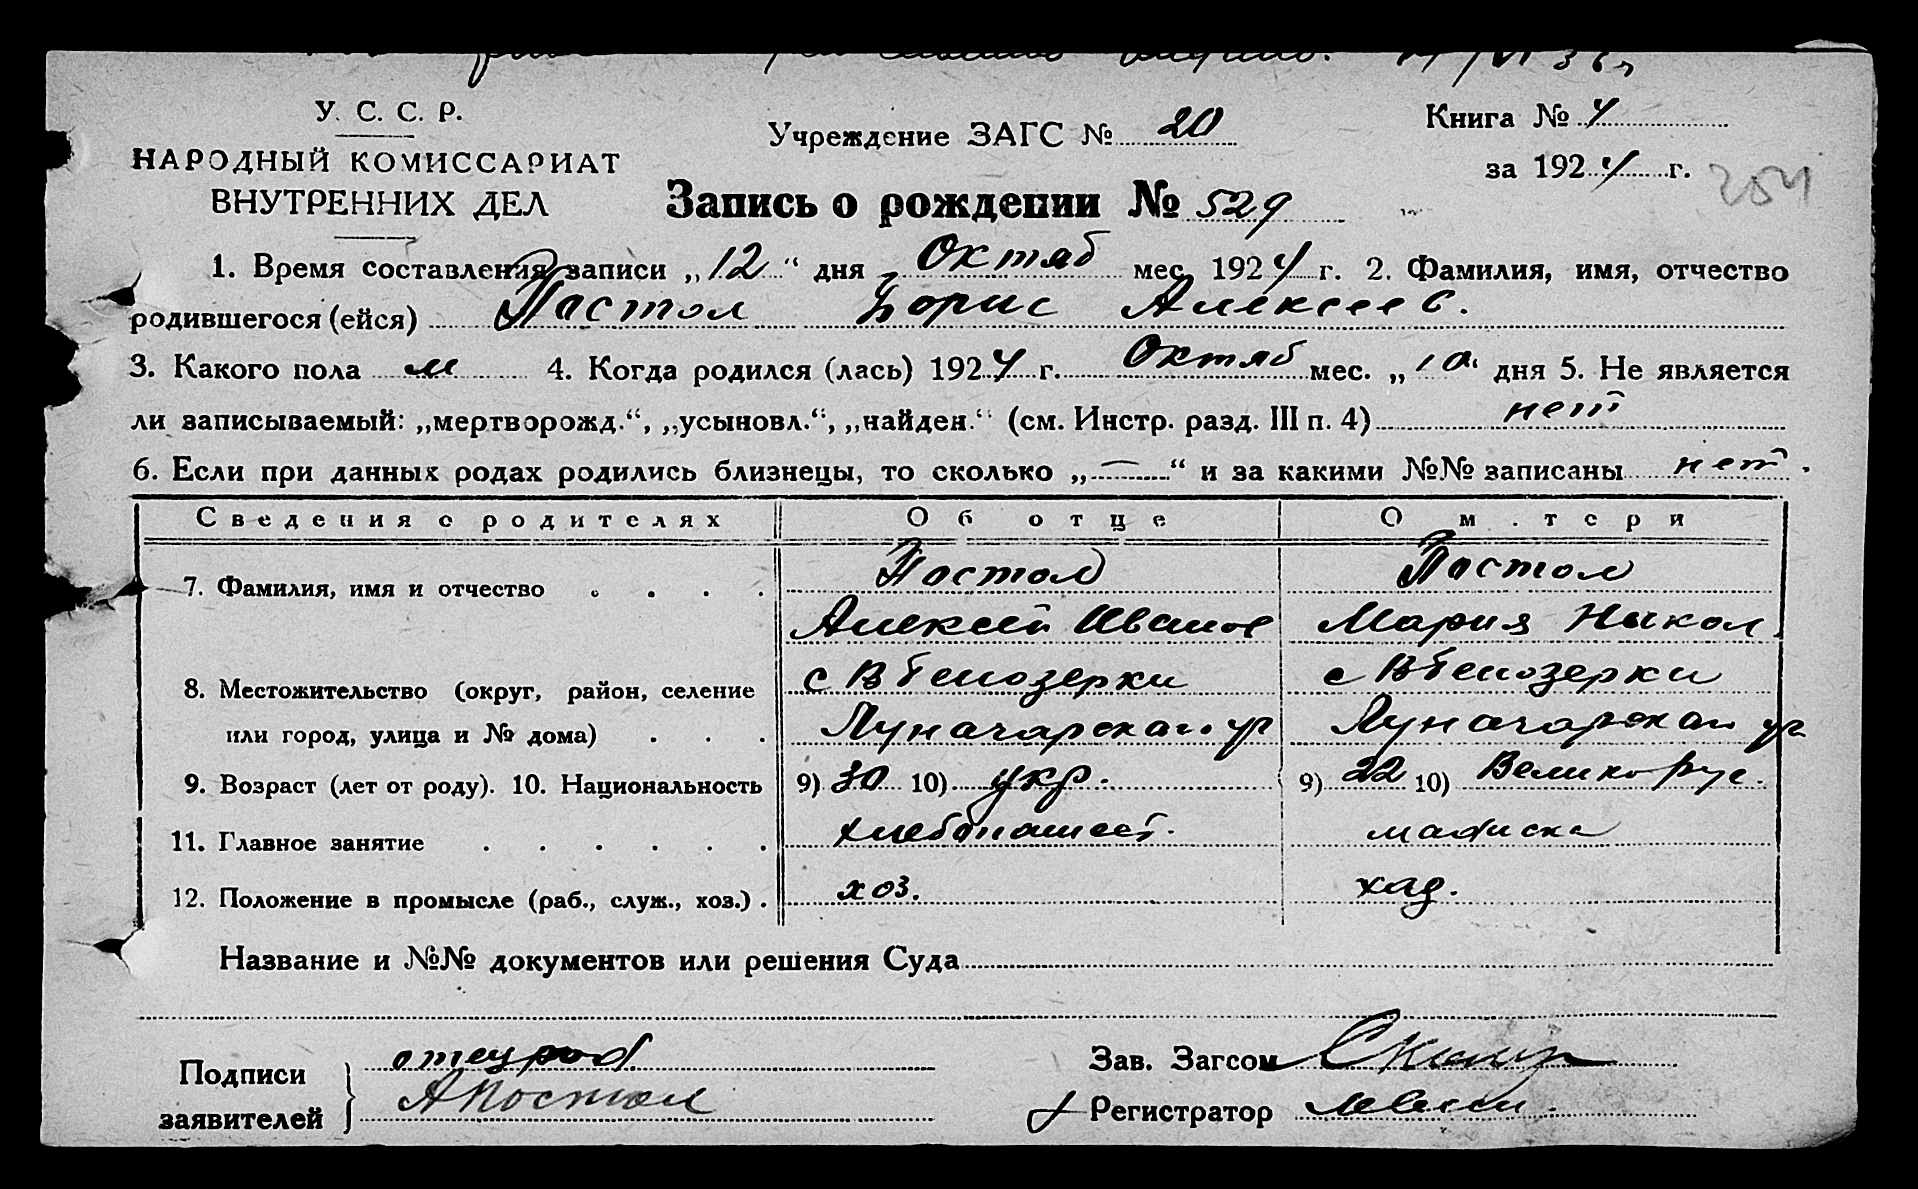 У. С. С. Р.
НАРОДНЫЙ КОМИССАРИАТ
ВНУТРЕННИХ ДЕЛ
Учреждение ЗАГС № 20
Книга № 4
за 1924 г.
204
Запись о рождении № 529
1. Время составления записи „12“ дня Октяб мес. 1924 г. 2. Фамилия, имя, отчество
родившегося (ейся) Постол Борис Алексеев.
3. Какого пола м 4. Когда родился (лась) 1924 г. Октяб мес. „10“ дня 5. Не является
ли записываемый: „мертворожд.“, „усыновл.“, „найден.“ (см. Инстр. разд. III п. 4) нет
6. Если при данных родах родились близнецы, то сколько „—“ и за какими №№ записаны нет.
Сведения о родителях Об отце О м.тери
7. Фамилия, имя и отчество . . . . Постол Постол
Алексей Иванов Мария Никол.
8. Местожительство (округ, район, селение с В Белозерки с В Белозерки
или город, улица и № дома) . . . Луначарская ул Луначарская ул
9. Возраст (лет от роду). 10. Национальность 9) 30 10) укр. 9) 22 10) Великорус.
11. Главное занятие . . . . . . хлебопашест.
12. Положение в промысле (раб., служ., хоз.) . хоз.
Название и №№ документов или решения Суда
Подписи
заявителей
отец
А Постол
Зав. Загсом
Регистратор